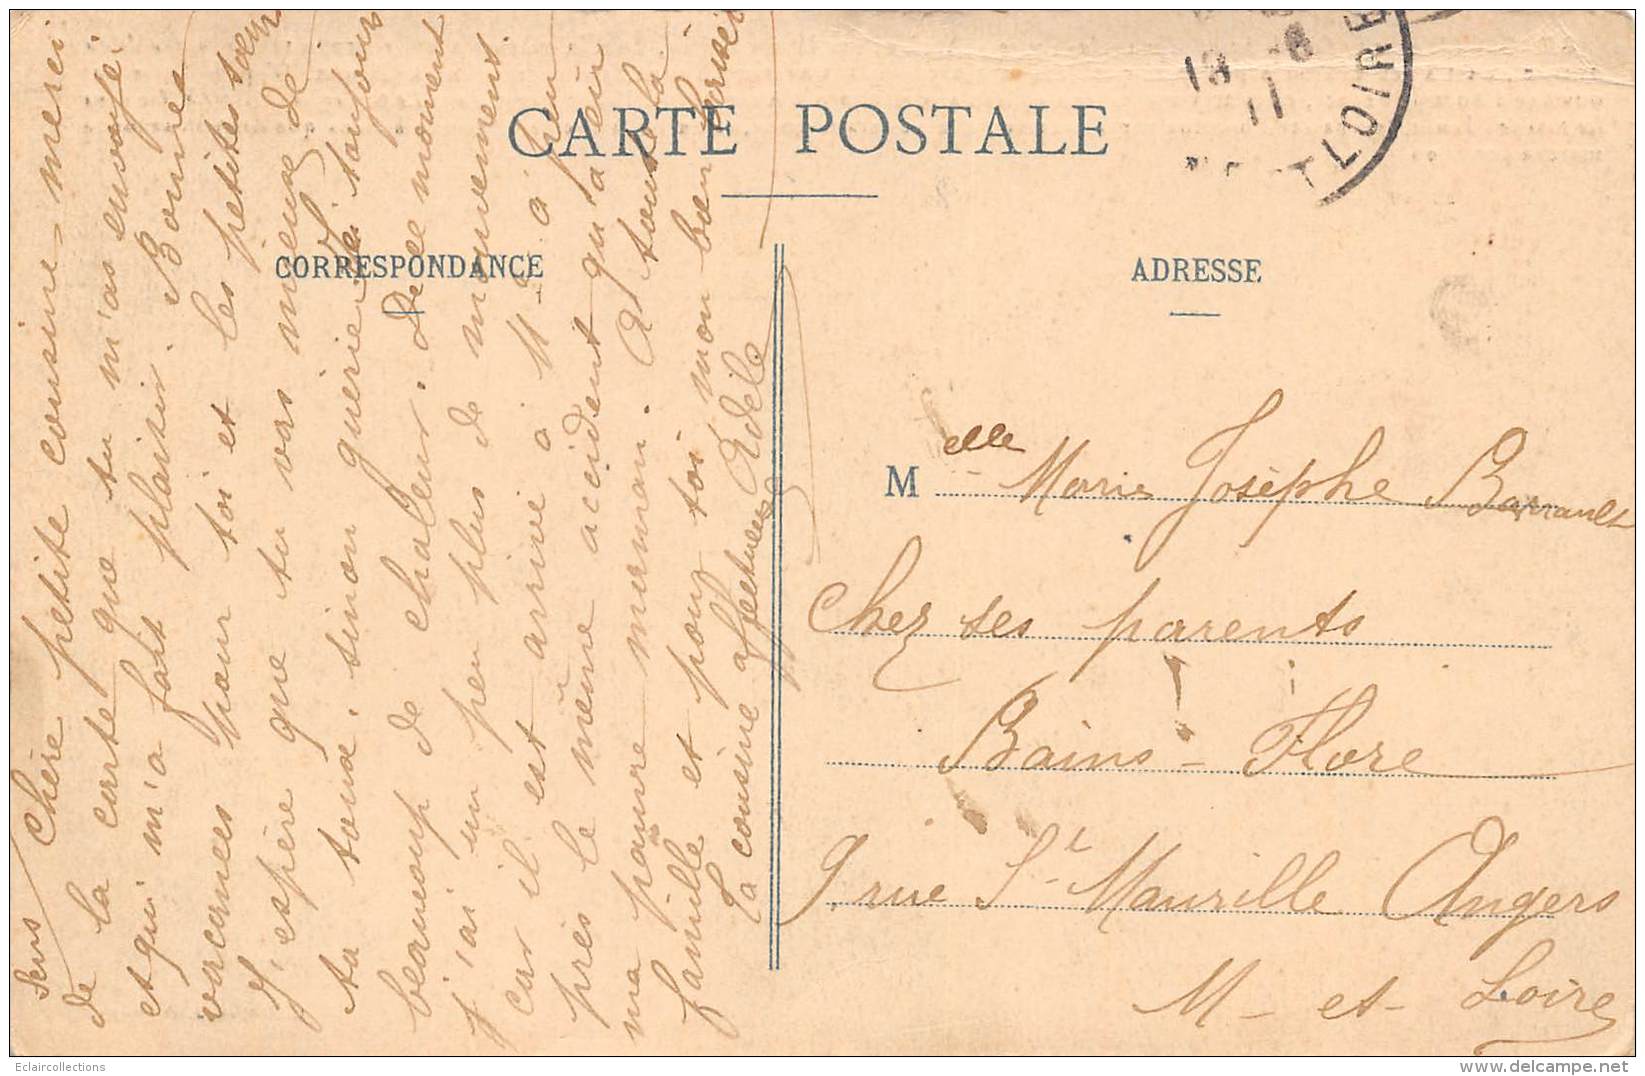 CARTE POSTALE
CORRESPONDANCE
ADRESSE
Chère petite cousine, merci
de la carte que tu m'as envoyée
et qui m'a fait plaisir. Bonnes
vacances pour toi et les petites sœurs
J'espère que tu vas mieux de
ta toux, sinon guérie. J'ai toujours
beaucoup de chaleur. De ce moment
j'ai un peu plus de mouvement
car il est arrivé à M. à peu
près le même accident qu'à
ma pauvre maman. A toute la
famille et pour toi mon bon baiser
Ta cousine affectueuse Adèle
Melle Marie Josèphe Barrault
Chez ses parents
Bains-Flore
9 rue St Maurille Angers
M-et-Loire
13 -8
11
ET LOIRE
Eclaircollections
delcampe.net